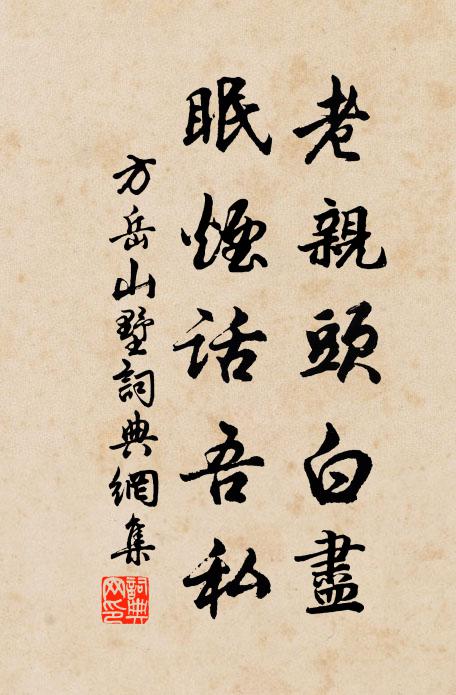 老親頭白盡
眠煙話吾私
方岳山墅詞典網集
詞典網印